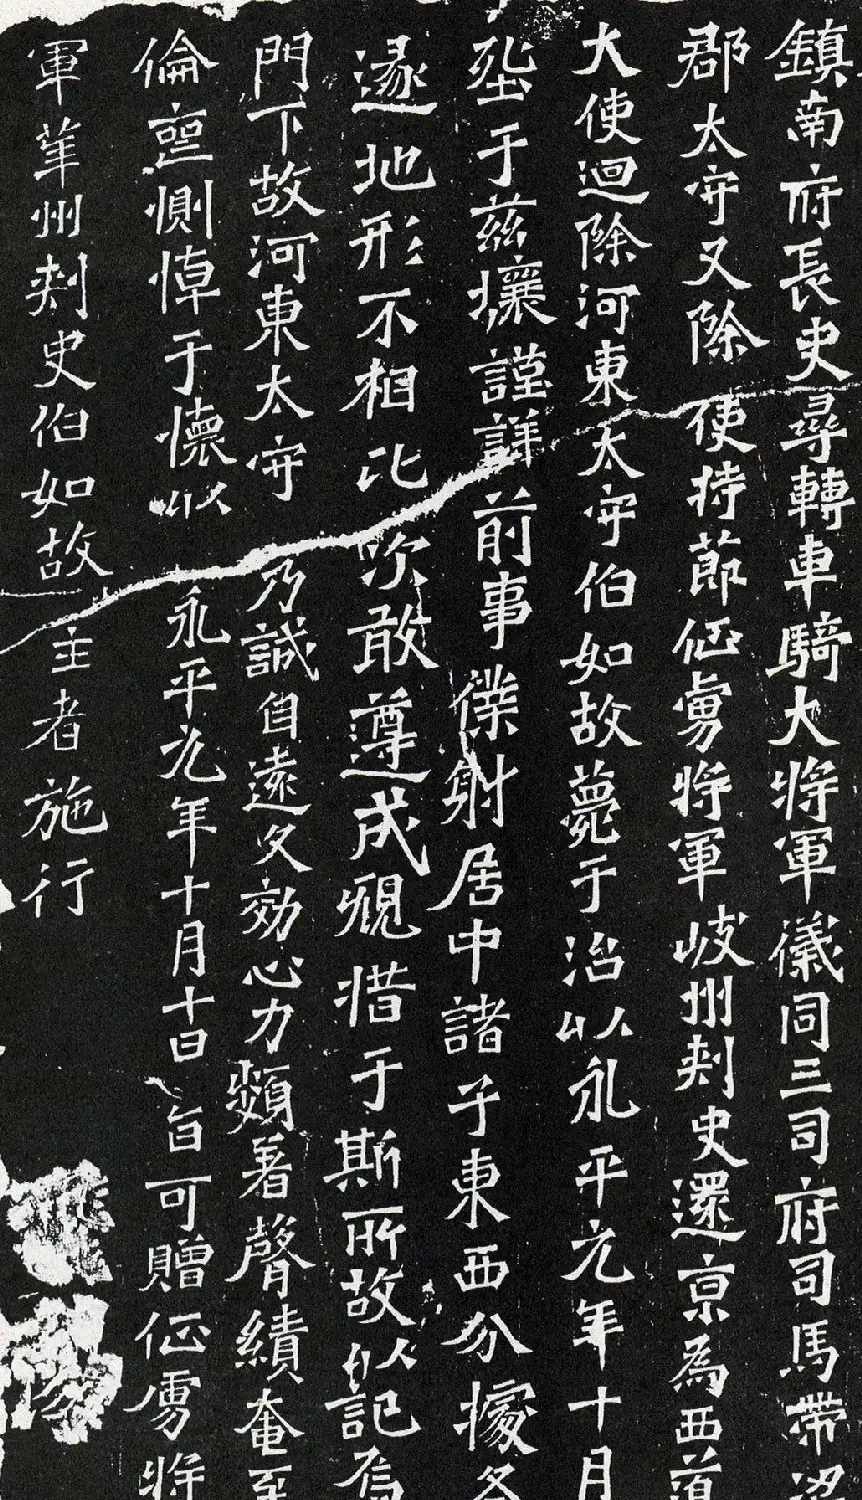 鎮南府長史尋轉車騎大将軍儀同三司府司馬帶
郡太守又除 使持節征虜将軍岐州刺史還京為西道
大使迴除河東太守伯如故薨于治以永平元年十月
塋于兹壤謹詳前事僕射居中諸子東西分據各
遂地形不相比次敢遵成規措于斯所故以記焉
門下故河東太守 乃誠自遠久効心力頻著聲績奄至
倫喪惻悼于懷以 永平元年十月十日 旨可贈征虜将
軍華州刺史伯如故 主者施行